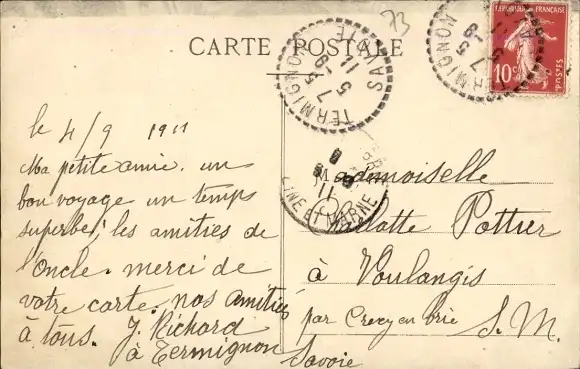 73
CARTE POSTALE
RÉPUBLIQUE FRANÇAISE
10c
POSTES
TERMIGNON
SAVOIE
TERMIGNON
SAVOIE
SEINE ET MARNE
le 4/9 1911
Ma petite amie. un
bon voyage un temps
superbe; les amitiés de
l'Oncle. merci de
votre carte. nos amitiés
à tous. J. Richard
à Termignon
Savoie
Mademoiselle
Pottier
à Voulangis
par Crecy en brie
S. M.